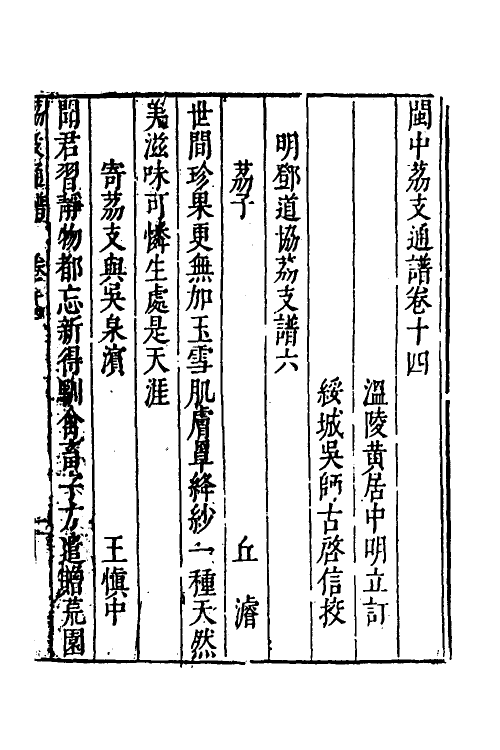 閩中荔支通譜卷十四
溫陵黄居中明立訂
綏城吳師古啓信挍
明鄧道協荔支譜六
荔子 丘濬
世間珍果更無加玉雪肌膚罩絳紗一種天然
美滋味可憐生處是天涯
寄荔支與吳泉濱 王愼中
聞君習靜物都忘新得馴禽畜子方遣贈荒園
荔支通譜 卷十四